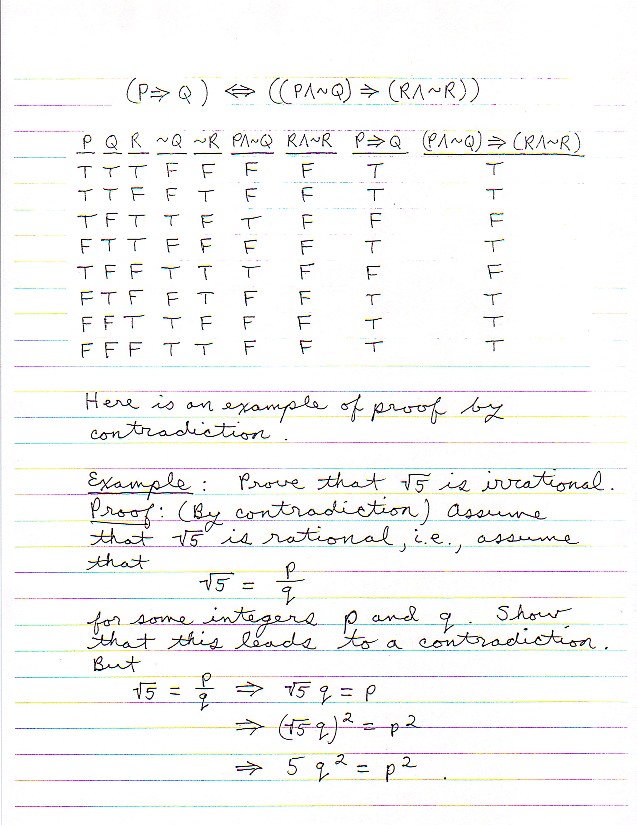 (P⇒ Q) ⇔ ((P∧~Q) ⇒ (R∧~R))
P Q R ~Q ~R P∧~Q R∧~R P⇒Q (P∧~Q) ⇒ (R∧~R)
T T T F F F F T T
T T F F T F F T T
T F T T F T F F F
F T T F F F F T T
T F F T T T F F F
F T F F T F F T T
F F T T F F F T T
F F F T T F F T T
Here is an example of proof by
contradiction.
Example: Prove that √5 is irrational.
Proof: (By contradiction) Assume
that √5 is rational, i.e., assume
that
√5 = p/q
for some integers p and q. Show
that this leads to a contradiction.
But
√5 = p/q ⇒ √5 q = p
⇒ (√5 q)² = p²
⇒ 5 q² = p².